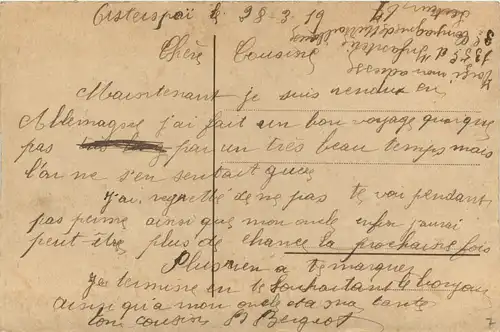 le 28-3-19
Chère Cousine
Maintenant je suis rendue en
Allemagne j'ai fait un bon voyage quoique
pas par un très beau temps mais
l'on ne s'en sentait guère
J'ai regretté de ne pas te voir pendant
pas perme ainsi que mon oncle enfin j'aurai
peut être plus de chance la prochaine fois
Plus rien a te marquer
je termine en te souhaitant le bonjour
ainsi qu'a mon oncle et a ma tante
ton cousin Bergeot
Voici mon adresse
d'Infanterie